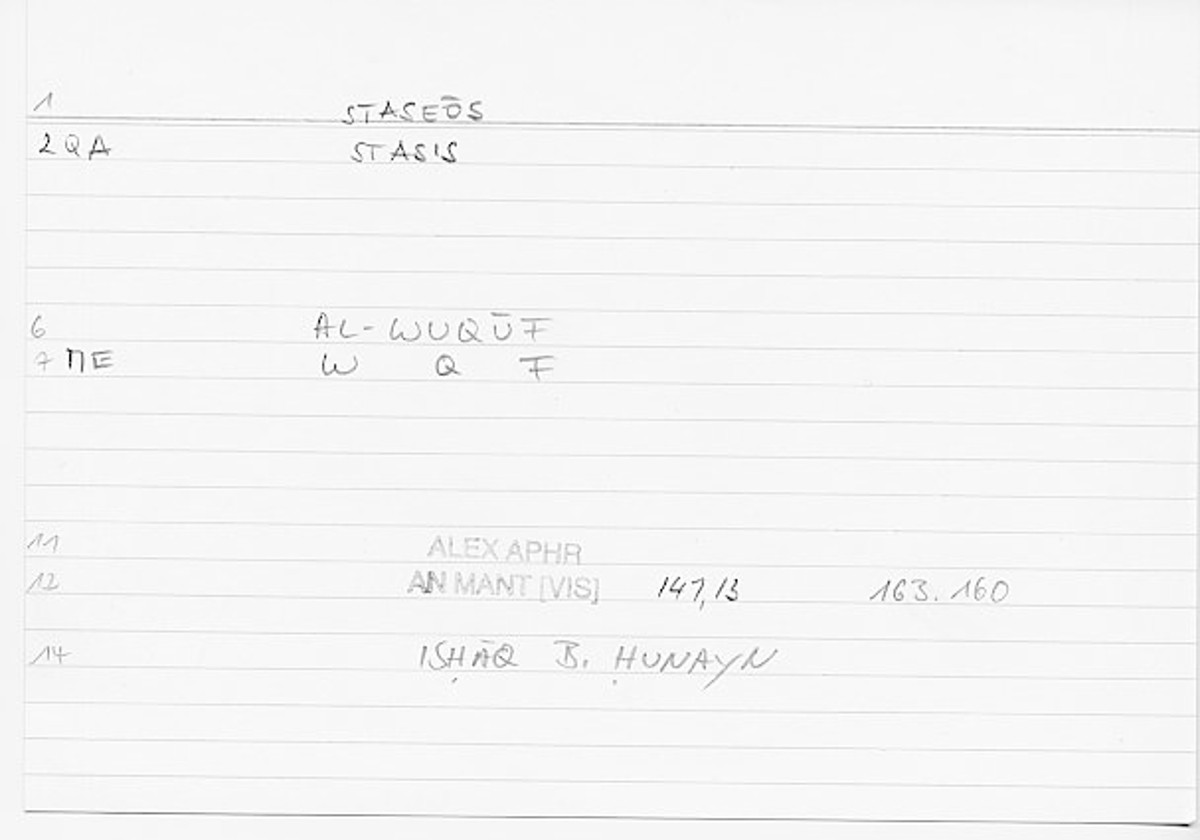 1 STASEŌS
2 QA STASIS
6 AL-WUQŪF
7 ME W Q F
11 ALEX APHR
12 AN MANT [VIS] 147,13 163.160
14 ISḤĀQ B. ḤUNAYN